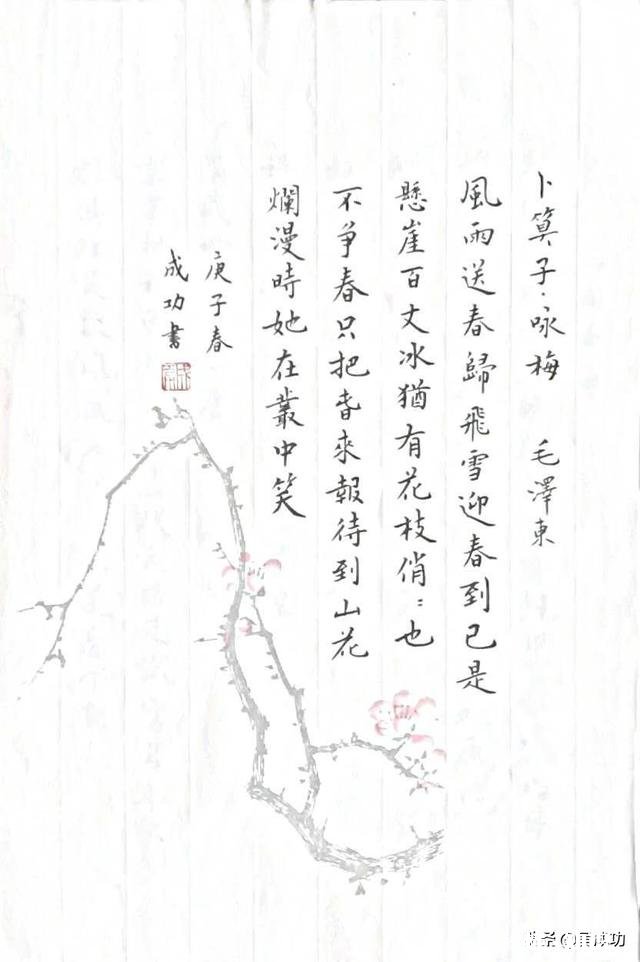 卜算子·咏梅　毛澤東
風雨送春歸飛雪迎春到已是
懸崖百丈冰猶有花枝俏：也
不爭春只把春來報待到山花
爛漫時她在叢中笑
庚子春
成功書